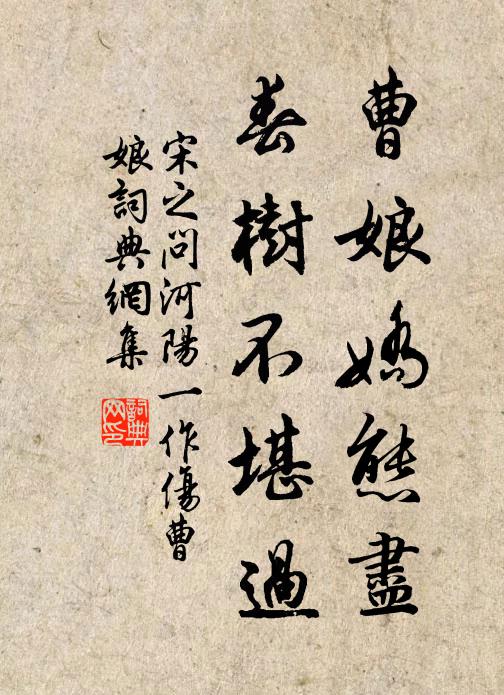 曹娘嬌態盡
春樹不堪過
宋之問河陽一作傷曹
娘詞典網集
詞典
网印